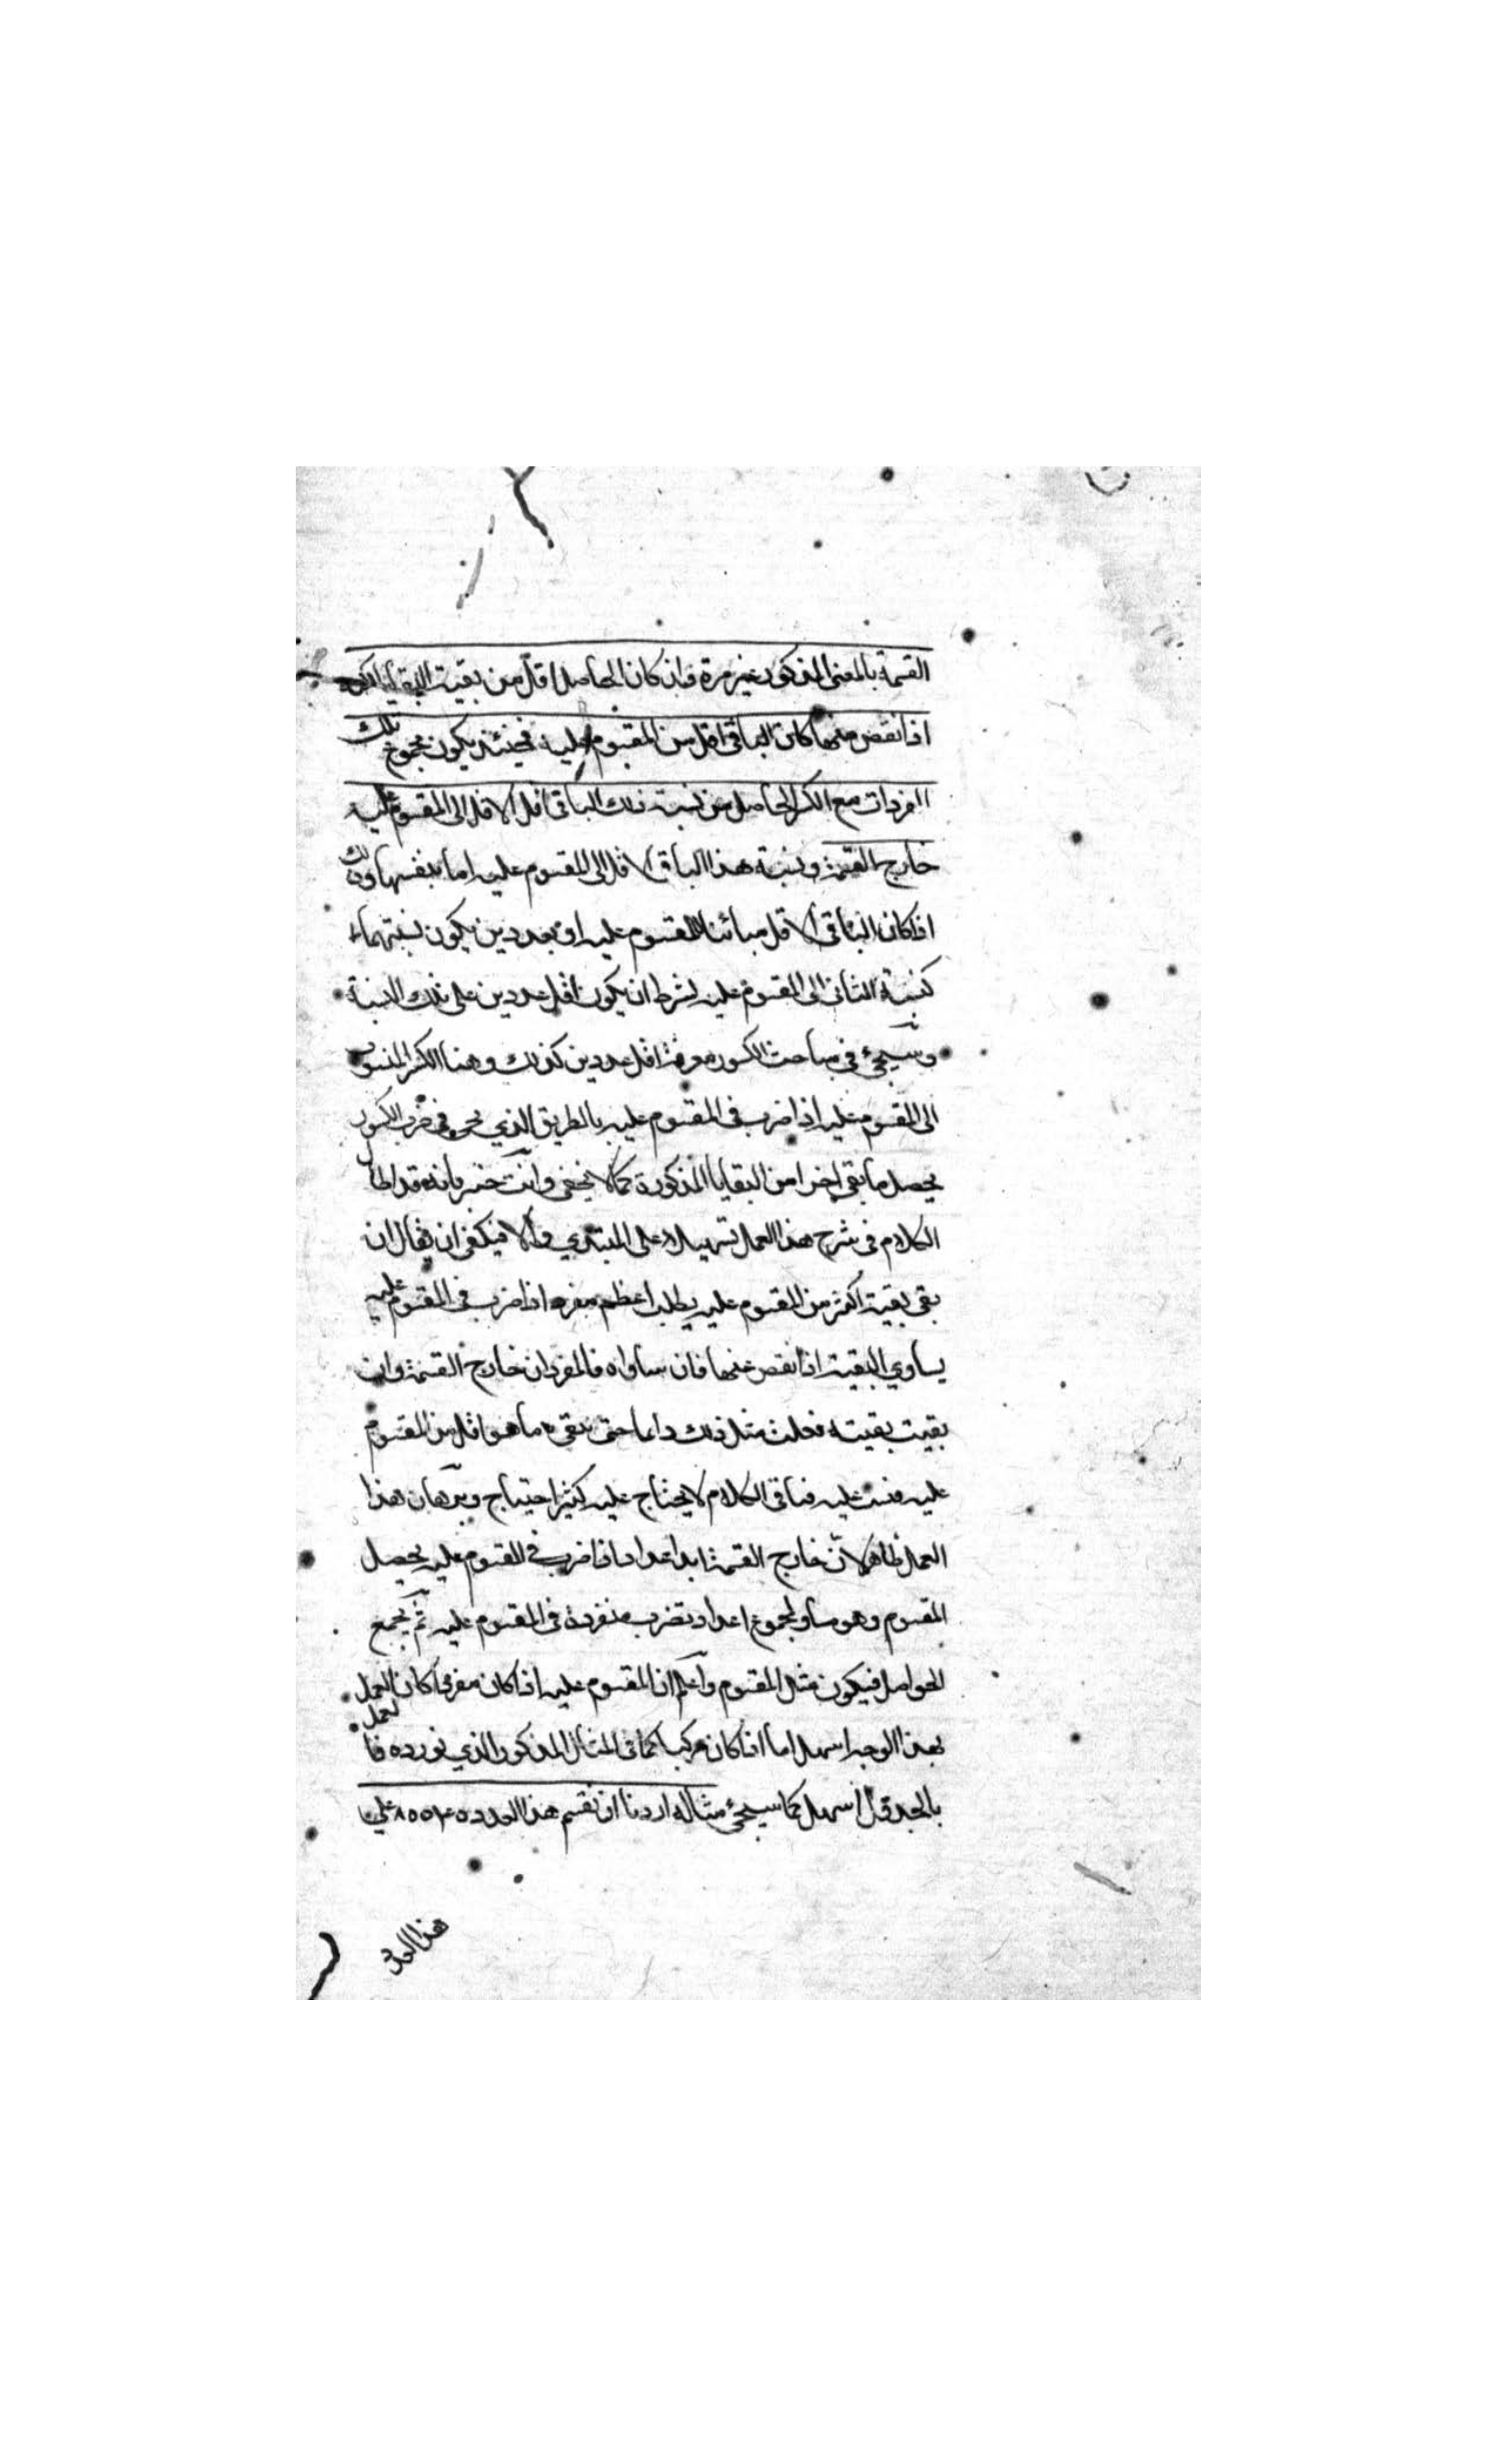 القسمة بالمعنى المذكور غير مرة وان كان الحاصل اقل من بقيت البقية
اذا نقص منها كان الباقى اقل من المقسوم عليه فحينئذ يكون مجموع تلك
المفردات مع الكسر الحاصل من نسبة ذلك الباقى الاقل الى المقسوم عليه
خارج القسمة ونسبة هذا الباقى الاقل الى المقسوم عليه اما بنفسها وذلك
اذا كان الباقى الاقل مباينا للمقسوم عليه او بعددين يكون نسبتهما
كنسبة الثانى الى المقسوم عليه بشرط ان يكون اقل عددين على تلك النسبة
وسيجئ فى مباحث الكسور معرفة اقل عددين كذلك وهنا الكسر المنسوب
الى المقسوم عليه اذا ضرب فى المقسوم عليه بالطريق الذي يجئ فى ضرب الكسور
يحصل ما بقى اخرا من البقايا المذكورة كما لا يخفى وانت خبير بانه قد اطال
الكلام فى شرح هذا العمل تسهيلا على المبتدي والا فيكفى ان يقال ان
بقى بقية اكثر من المقسوم عليه يطلب اعظم مفرد اذا ضرب فى المقسوم عليه
يساوي البقية اذا نقص عنها فان ساواه فالمفردان خارج القسمة وان
بقيت بقية فعلت مثل ذلك دائما حتى تبقى ما هو اقل من المقسوم
عليه فنسب عليه فباقى الكلام لا يحتاج عليه كثير احتياج وبرهان هذا
العمل ظاهر لان خارج القسمة ابدا عدد اذا ضرب فى المقسوم عليه يحصل
المقسوم وهو مساو لمجموع اعداد تضرب منفردة فى المقسوم عليه ثم يجمع
الحواصل فيكون مثل المقسوم واعلم ان المقسوم عليه اذا كان مفردا كان العمل
بهذا الوجه اسهل اما اذا كان مركبا كما فى المثال المذكور الذي نورده فالعمل
بالجدول اسهل كما سيجئ مثاله اردنا ان نقسم هذا العدد على
هذا العدد